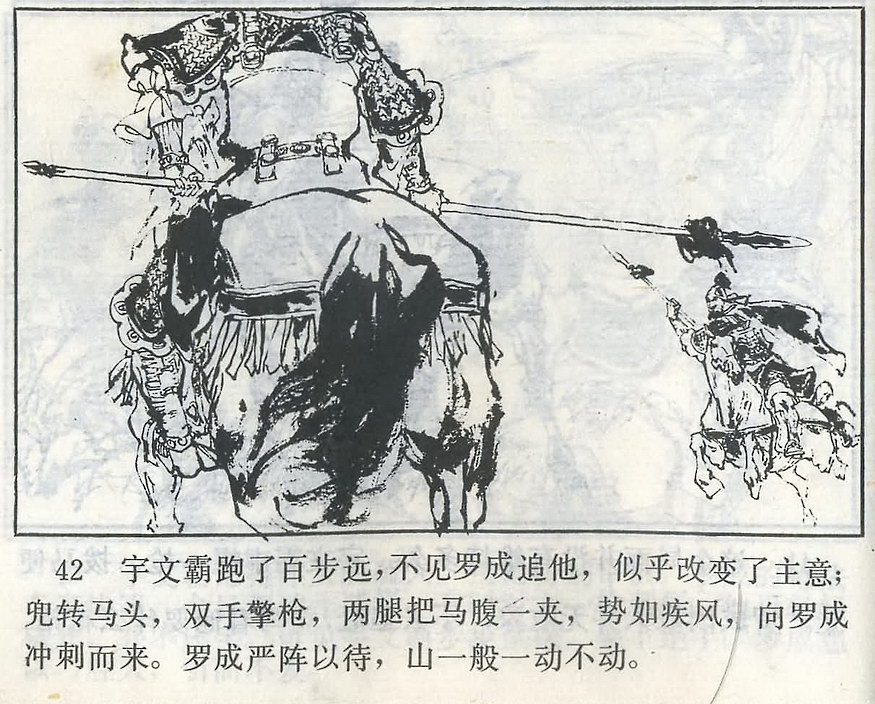 42 宇文霸跑了百步远，不见罗成追他，似乎改变了主意；
兜转马头，双手擎枪，两腿把马腹一夹，势如疾风，向罗成
冲刺而来。罗成严阵以待，山一般一动不动。